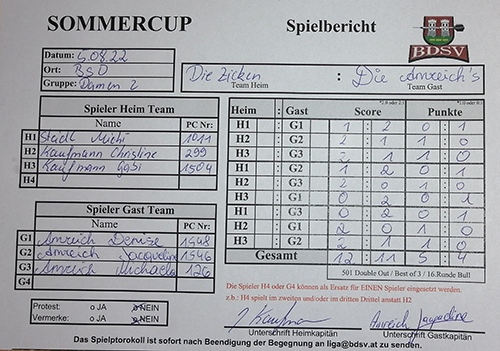 SOMMERCUP
Spielbericht
BDSV
Datum: 5.08.22
Ort: BSD
Gruppe: Damen 2
Die Zicken : Die Anreich's
Team Heim Team Gast
Spieler Heim Team
Name PC Nr:
H1 Stadl Michi 1011
H2 Kaufmann Christine 299
H3 Kaufmann Gabi 1504
H4
Spieler Gast Team
Name PC Nr:
G1 Anreich Denise 1548
G2 Anreich Jacqueline 1546
G3 Anreich Michaela 126
G4
Protest: o JA o NEIN
Vermerke: o JA o NEIN
Heim : Gast Score Punkte
H1 : G1 1 : 2 0 : 1
H2 : G2 2 : 1 1 : 0
H3 : G3 2 : 1 1 : 0
H1 : G2 1 : 2 0 : 1
H2 : G3 2 : 0 1 : 0
H3 : G1 0 : 2 0 : 1
H1 : G3 0 : 2 0 : 1
H2 : G1 2 : 0 1 : 0
H3 : G2 2 : 1 1 : 0
Gesamt 12 : 11 5 : 4
501 Double Out / Best of 3 / 16.Runde Bull
Die Spieler H4 oder G4 können als Ersatz für EINEN Spieler eingesetzt werden.
z.b.: H4 spielt im zweiten und/oder im dritten Drittel anstatt H2
Kaufmann Anreich Jacqueline
Unterschrift Heimkapitän Unterschrift Gastkapitän
Das Spielprotokoll ist sofort nach Beendigung der Begegnung an liga@bdsv.at zu senden.